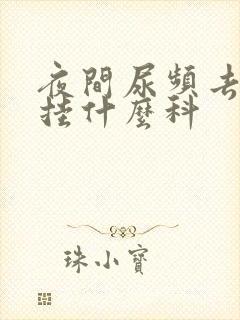 夜間尿頻去
挂什麼科
珠小寶